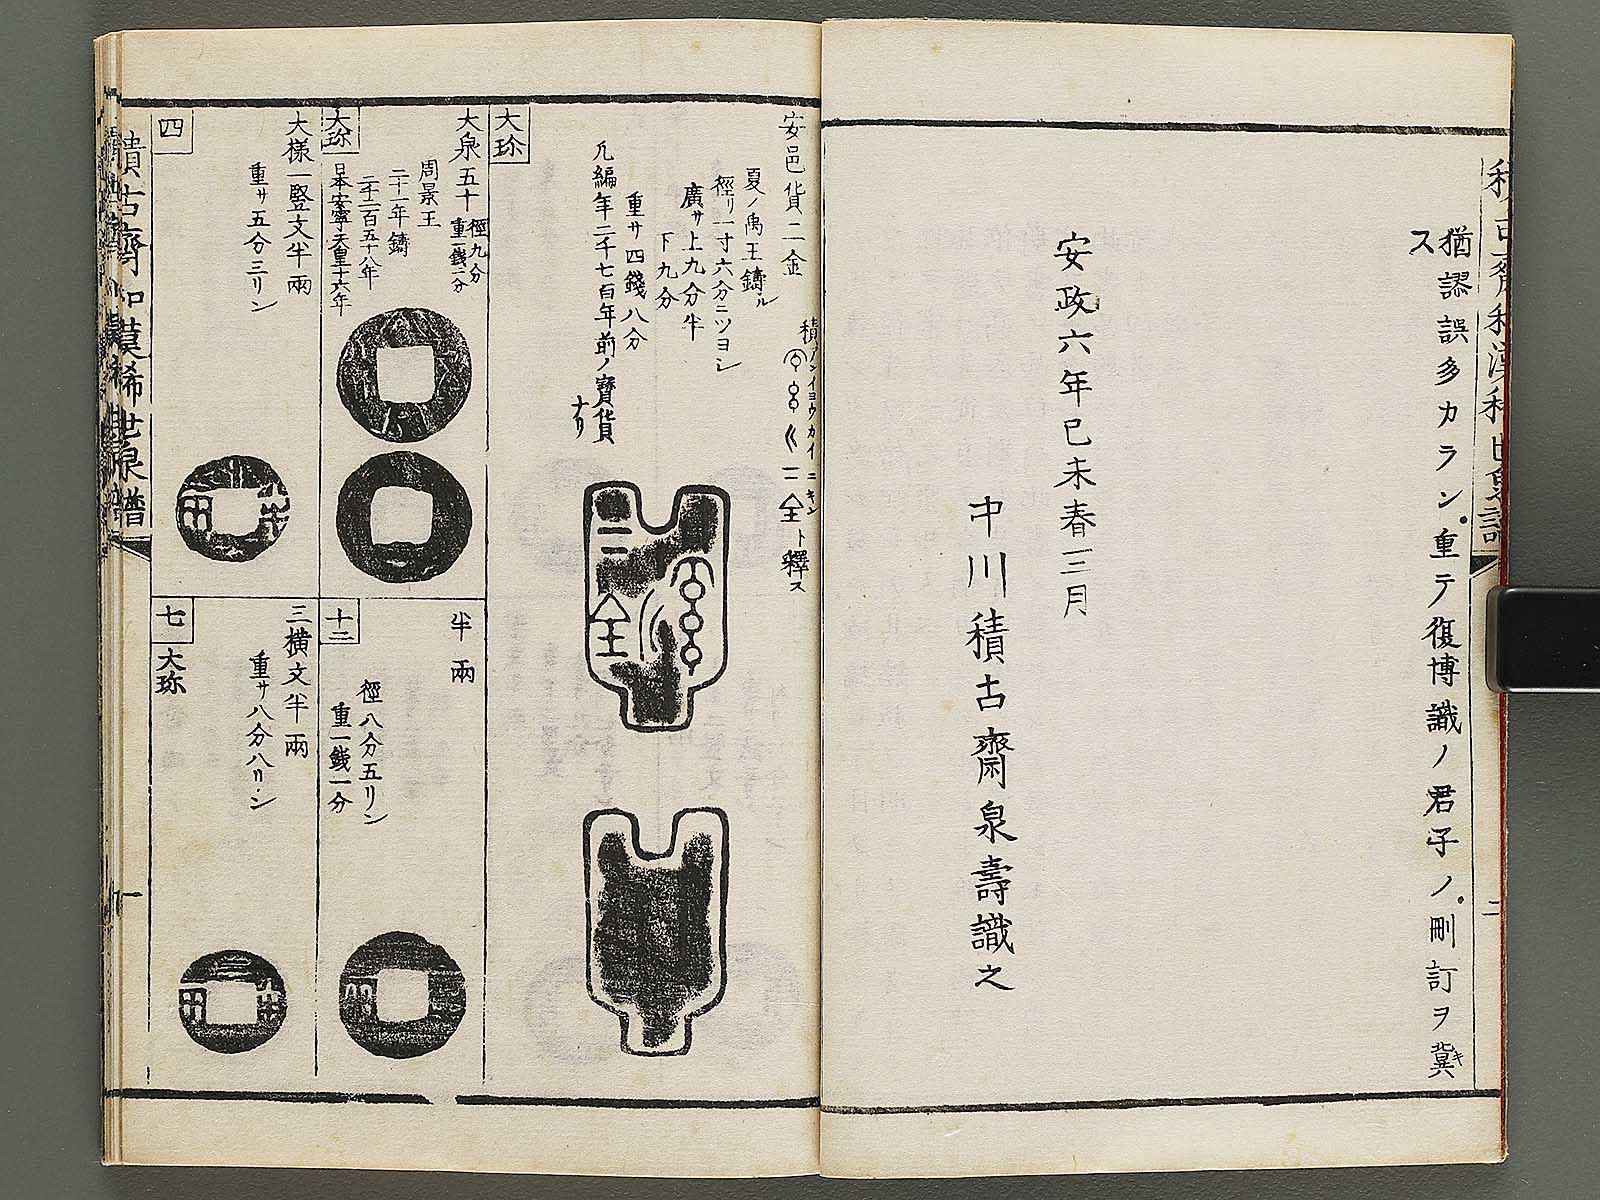 猶謬誤多カラン重テ復博識ノ君子ノ刪訂ヲ冀
ス
安政六年己未春三月
中川積古齋泉壽識之
安邑貨二金
夏ノ禹王鑄ル
徑リ一寸六分ニツヨシ
廣サ上九分半
下九分
重サ四錢八分
凡編年二千七百年前ノ寶貨
ナリ
二全ト釋ス
大珎
大泉五十
徑九分
重一錢二分
周景王
二十一年鑄
二千三百五十八年
日本安寧天皇十六年
大珎
大樣一竪文半兩
重サ五分三リン
四
半兩
徑八分五リン
重一錢一分
十二
三橫文半兩
重サ八分八リン
七
大珎
積古齋和漢稀世泉譜